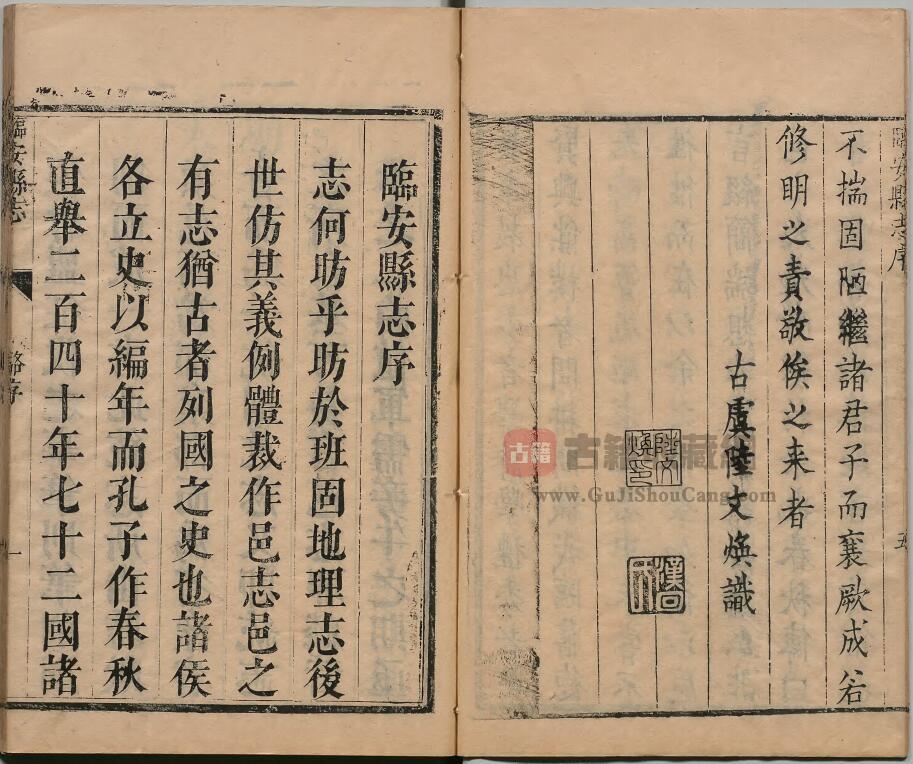 臨安縣志序
不揣固陋繼諸君子而襄厥成若
修明之責敬俟之来者
古虞陸文煥識
陸文煥印
五
古籍
古籍收藏網
www.GuJiShouCang.com
臨安縣志序
志何昉乎昉於班固地理志後
世仿其義例體裁作邑志邑之
有志猶古者列國之史也諸侯
各立史以編年而孔子作春秋
直舉二百四十年七十二國諸
臨安縣志
序
一